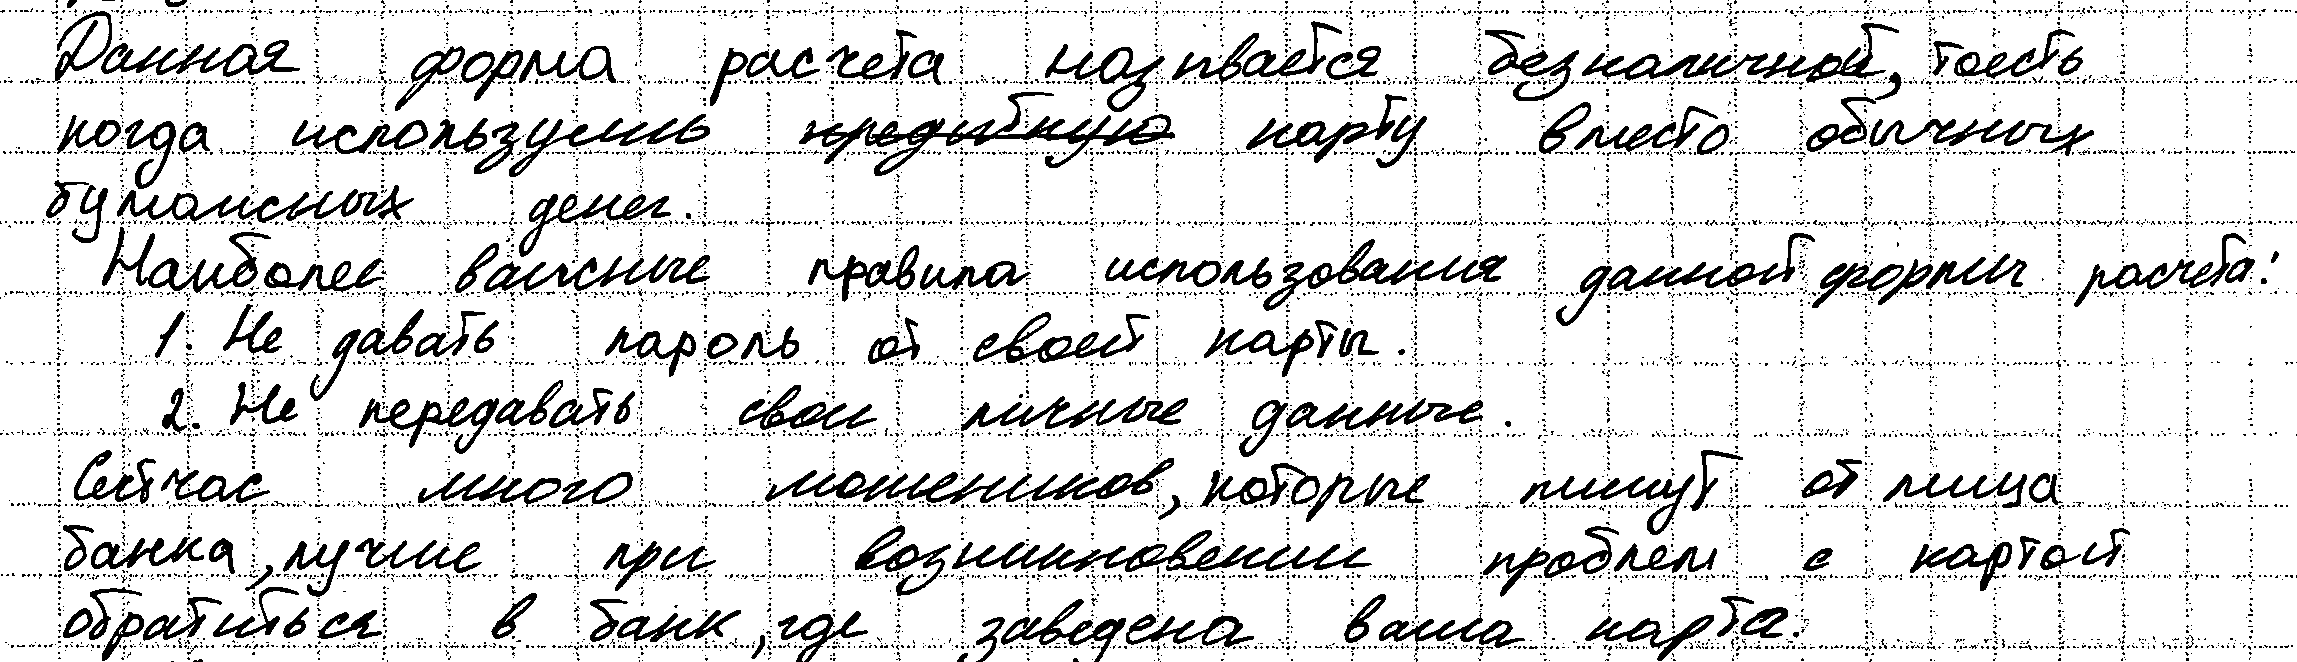 Данная форма расчета называется безналичной, тоесть
когда используешь кредитную карту вместо обычных
бумажных денег.
Наиболее важные правила использования данной формы расчета:
1. Не давать пароль от своей карты.
2. Не передавать свои личные данные.
Сейчас много мошеников, которые пишут от лица
банка, лучше при возникновении проблем с картой
обратиться в банк, где заведена ваша карта.